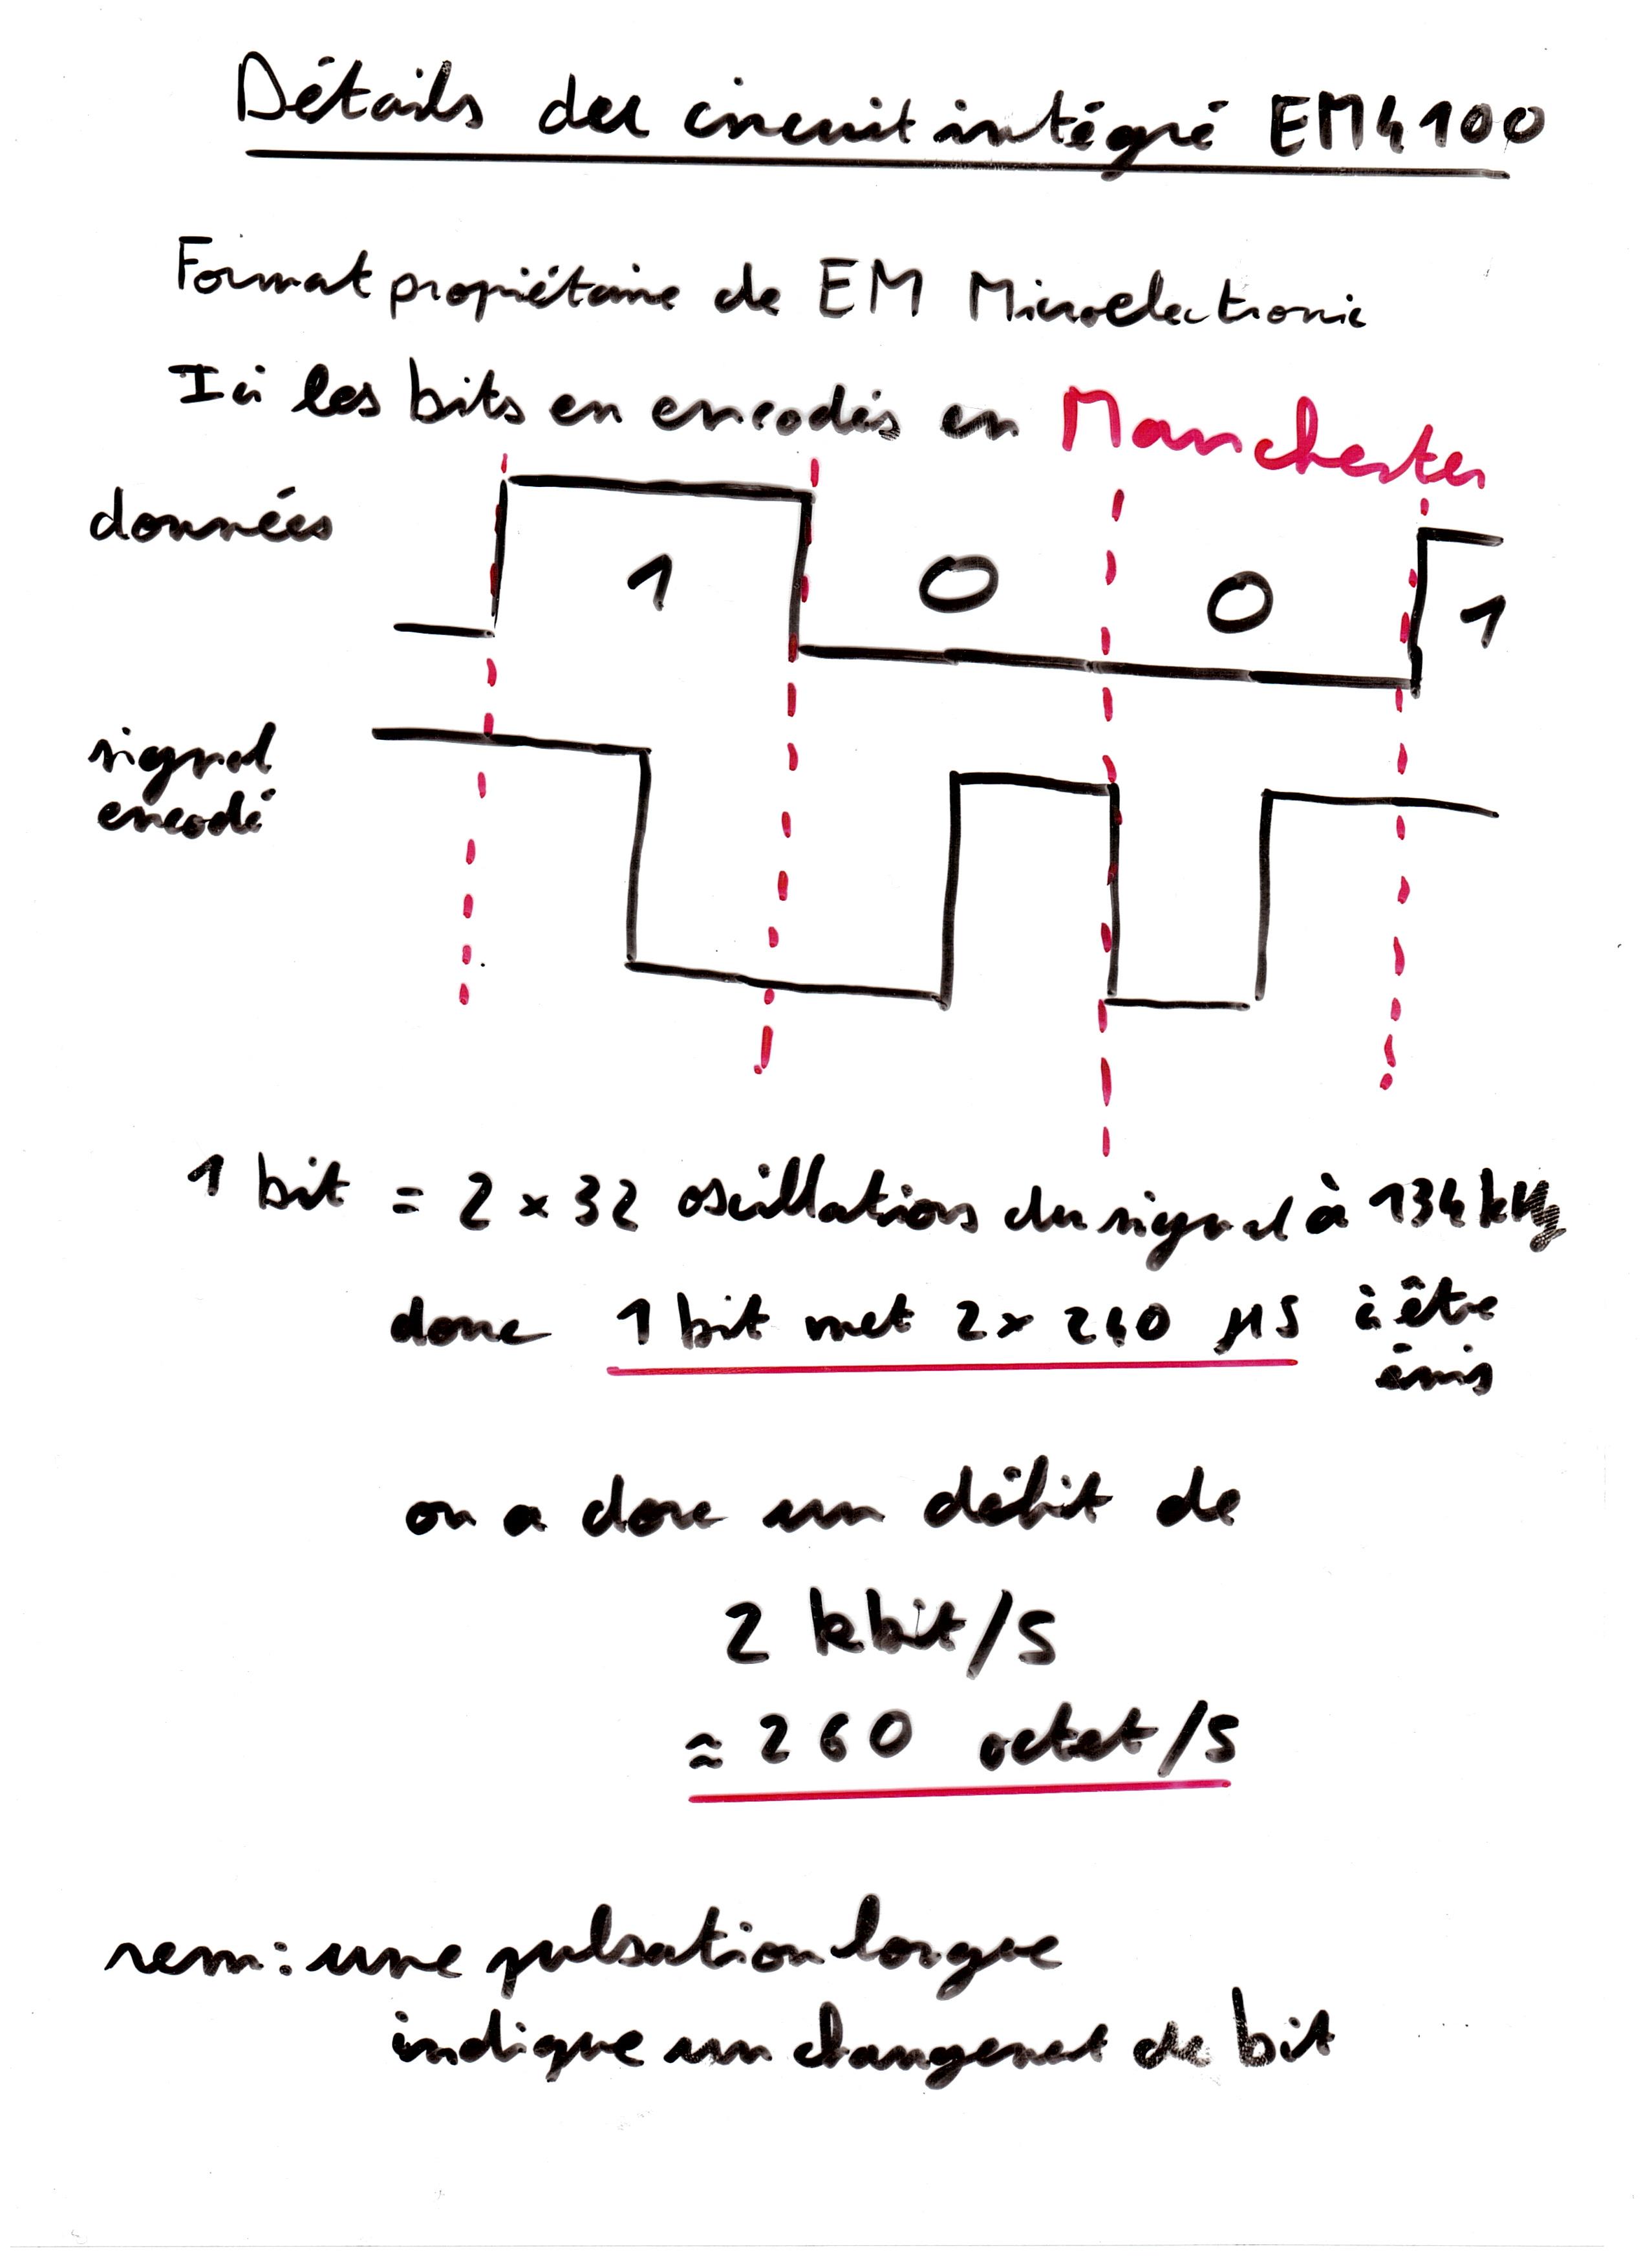 Détails del circuit intégré EM4100
Format propriétaire de EM Microelectronic
Ici les bits en encodés en Manchester
données
1 0 0 1
signal
encodé
1 bit = 2 x 32 oscillations du signal à 134 kHz
donc 1 bit met 2 x 240 µS à être
émis
on a donc un débit de
2 kbit/s
≈ 260 octet/s
rem: une pulsation longue
indique un changement de bit